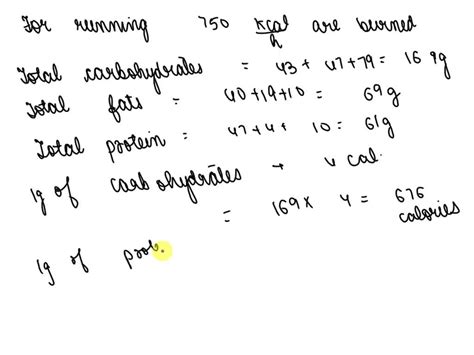 For running 750 kcal/h are burned
Total carbohydrates = 43 + 47+79= 169g
Total fats = 40+19+10 = 69g
Total protein = 47+4+ 10= 61g
1g of carbohydrates → 4 cal.
= 169× 4 = 676 calories
1g of prot.